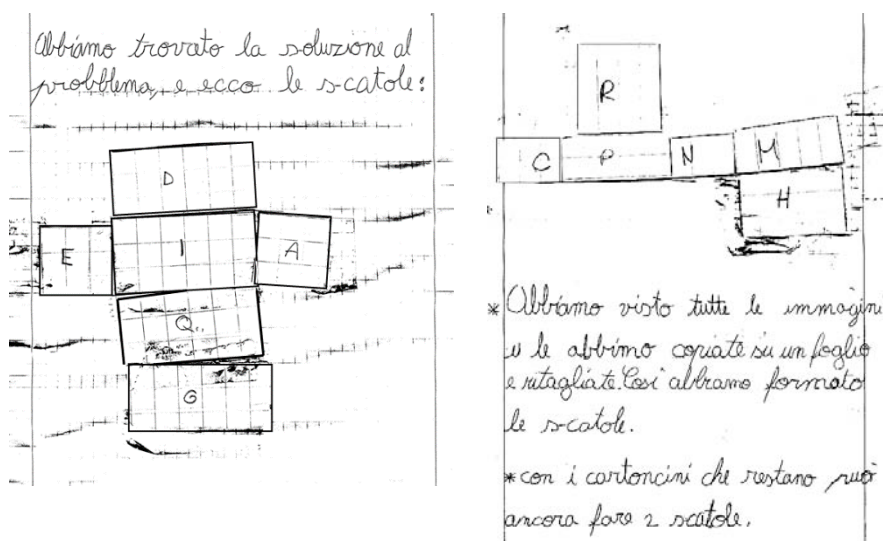 Abbiamo trovato la soluzione al
probblema, e ecco le scatole:
D
E I A
Q
G
R
C P N M
H
* Abbiamo visto tutte le immagini
e le abbimo copiate su un foglio
e ritagliate. Così abbiamo formato
le scatole.
* con i cartoncini che restano può
ancora fare 2 scatole.